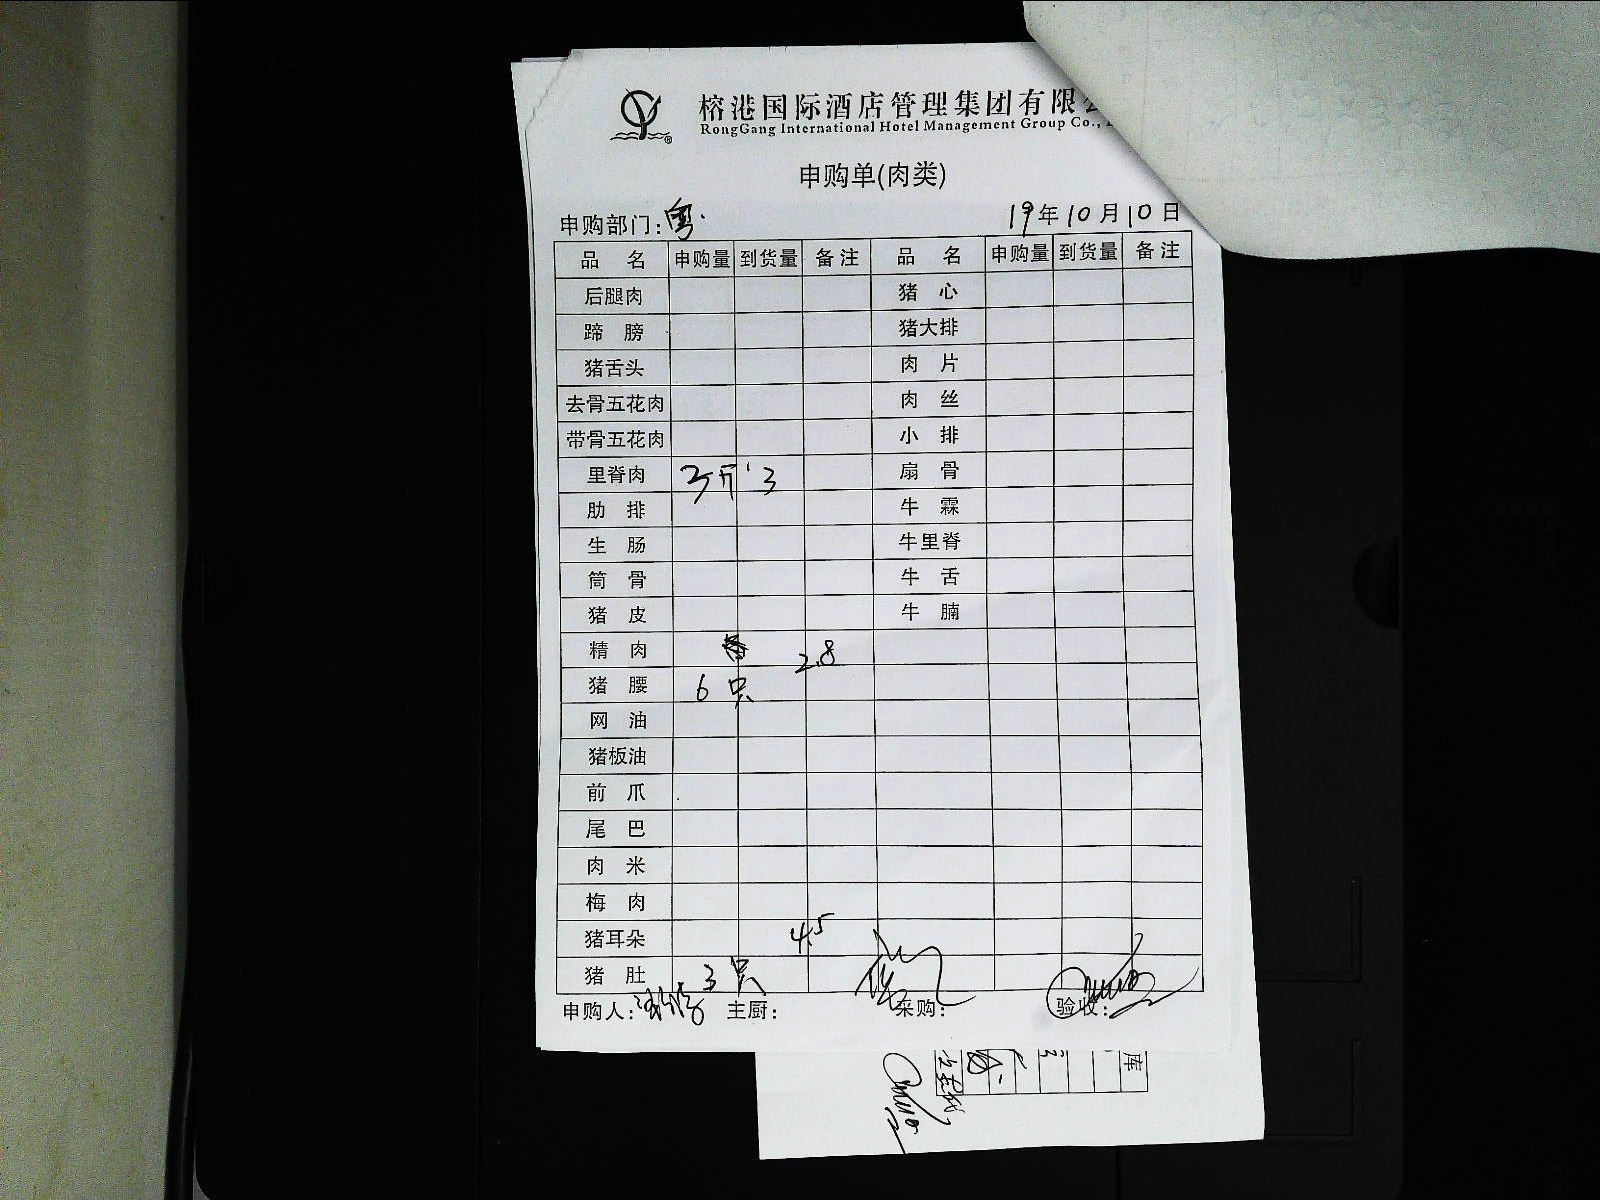 榕港国际酒店管理集团有限
RongGang International Hotel Management Group Co.,
申购单(肉类)
申购部门:粤.
19年10月10日
品 名 申购量 到货量 备注 品 名 申购量 到货量 备注
后腿肉 猪 心
蹄 膀 猪大排
猪舌头 肉 片
去骨五花肉 肉 丝
带骨五花肉 小 排
里脊肉 3斤 3 扇 骨
肋 排 牛 霖
生 肠 牛里脊
筒 骨 牛 舌
猪 皮 牛 腩
精 肉 2.8
猪 腰 6只
网 油
猪板油
前 爪
尾 巴
肉 米
梅 肉
猪耳朵 4.5
猪 肚 3只
申购人: 主厨: 采购: 验收:
库